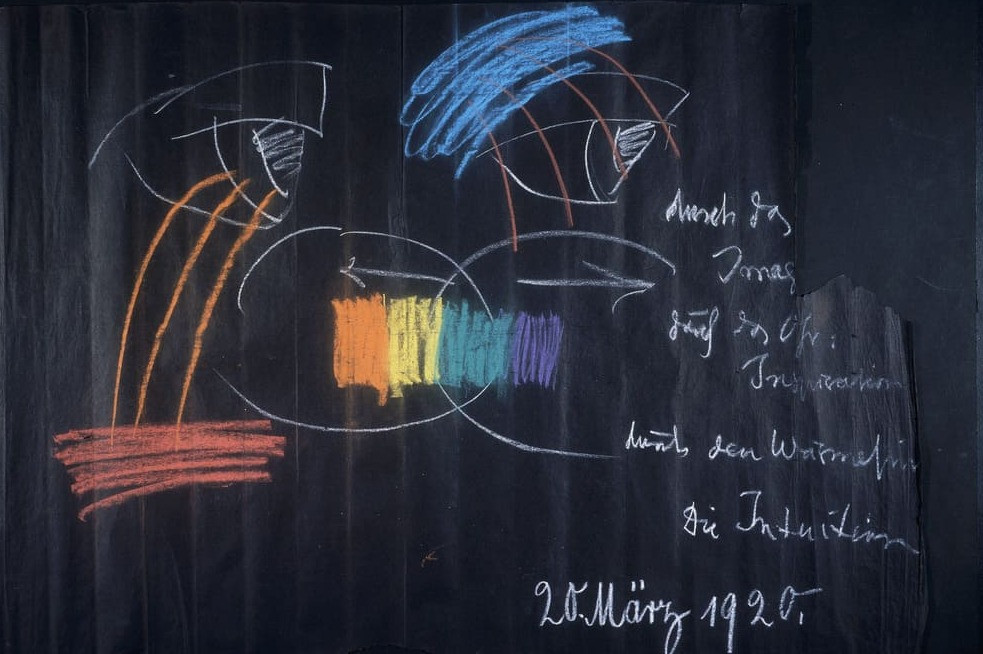 durch das
Imag
durch das Ohr:
Inspiration
durch den Wärmesin
Die Intuition
20. März 1920.